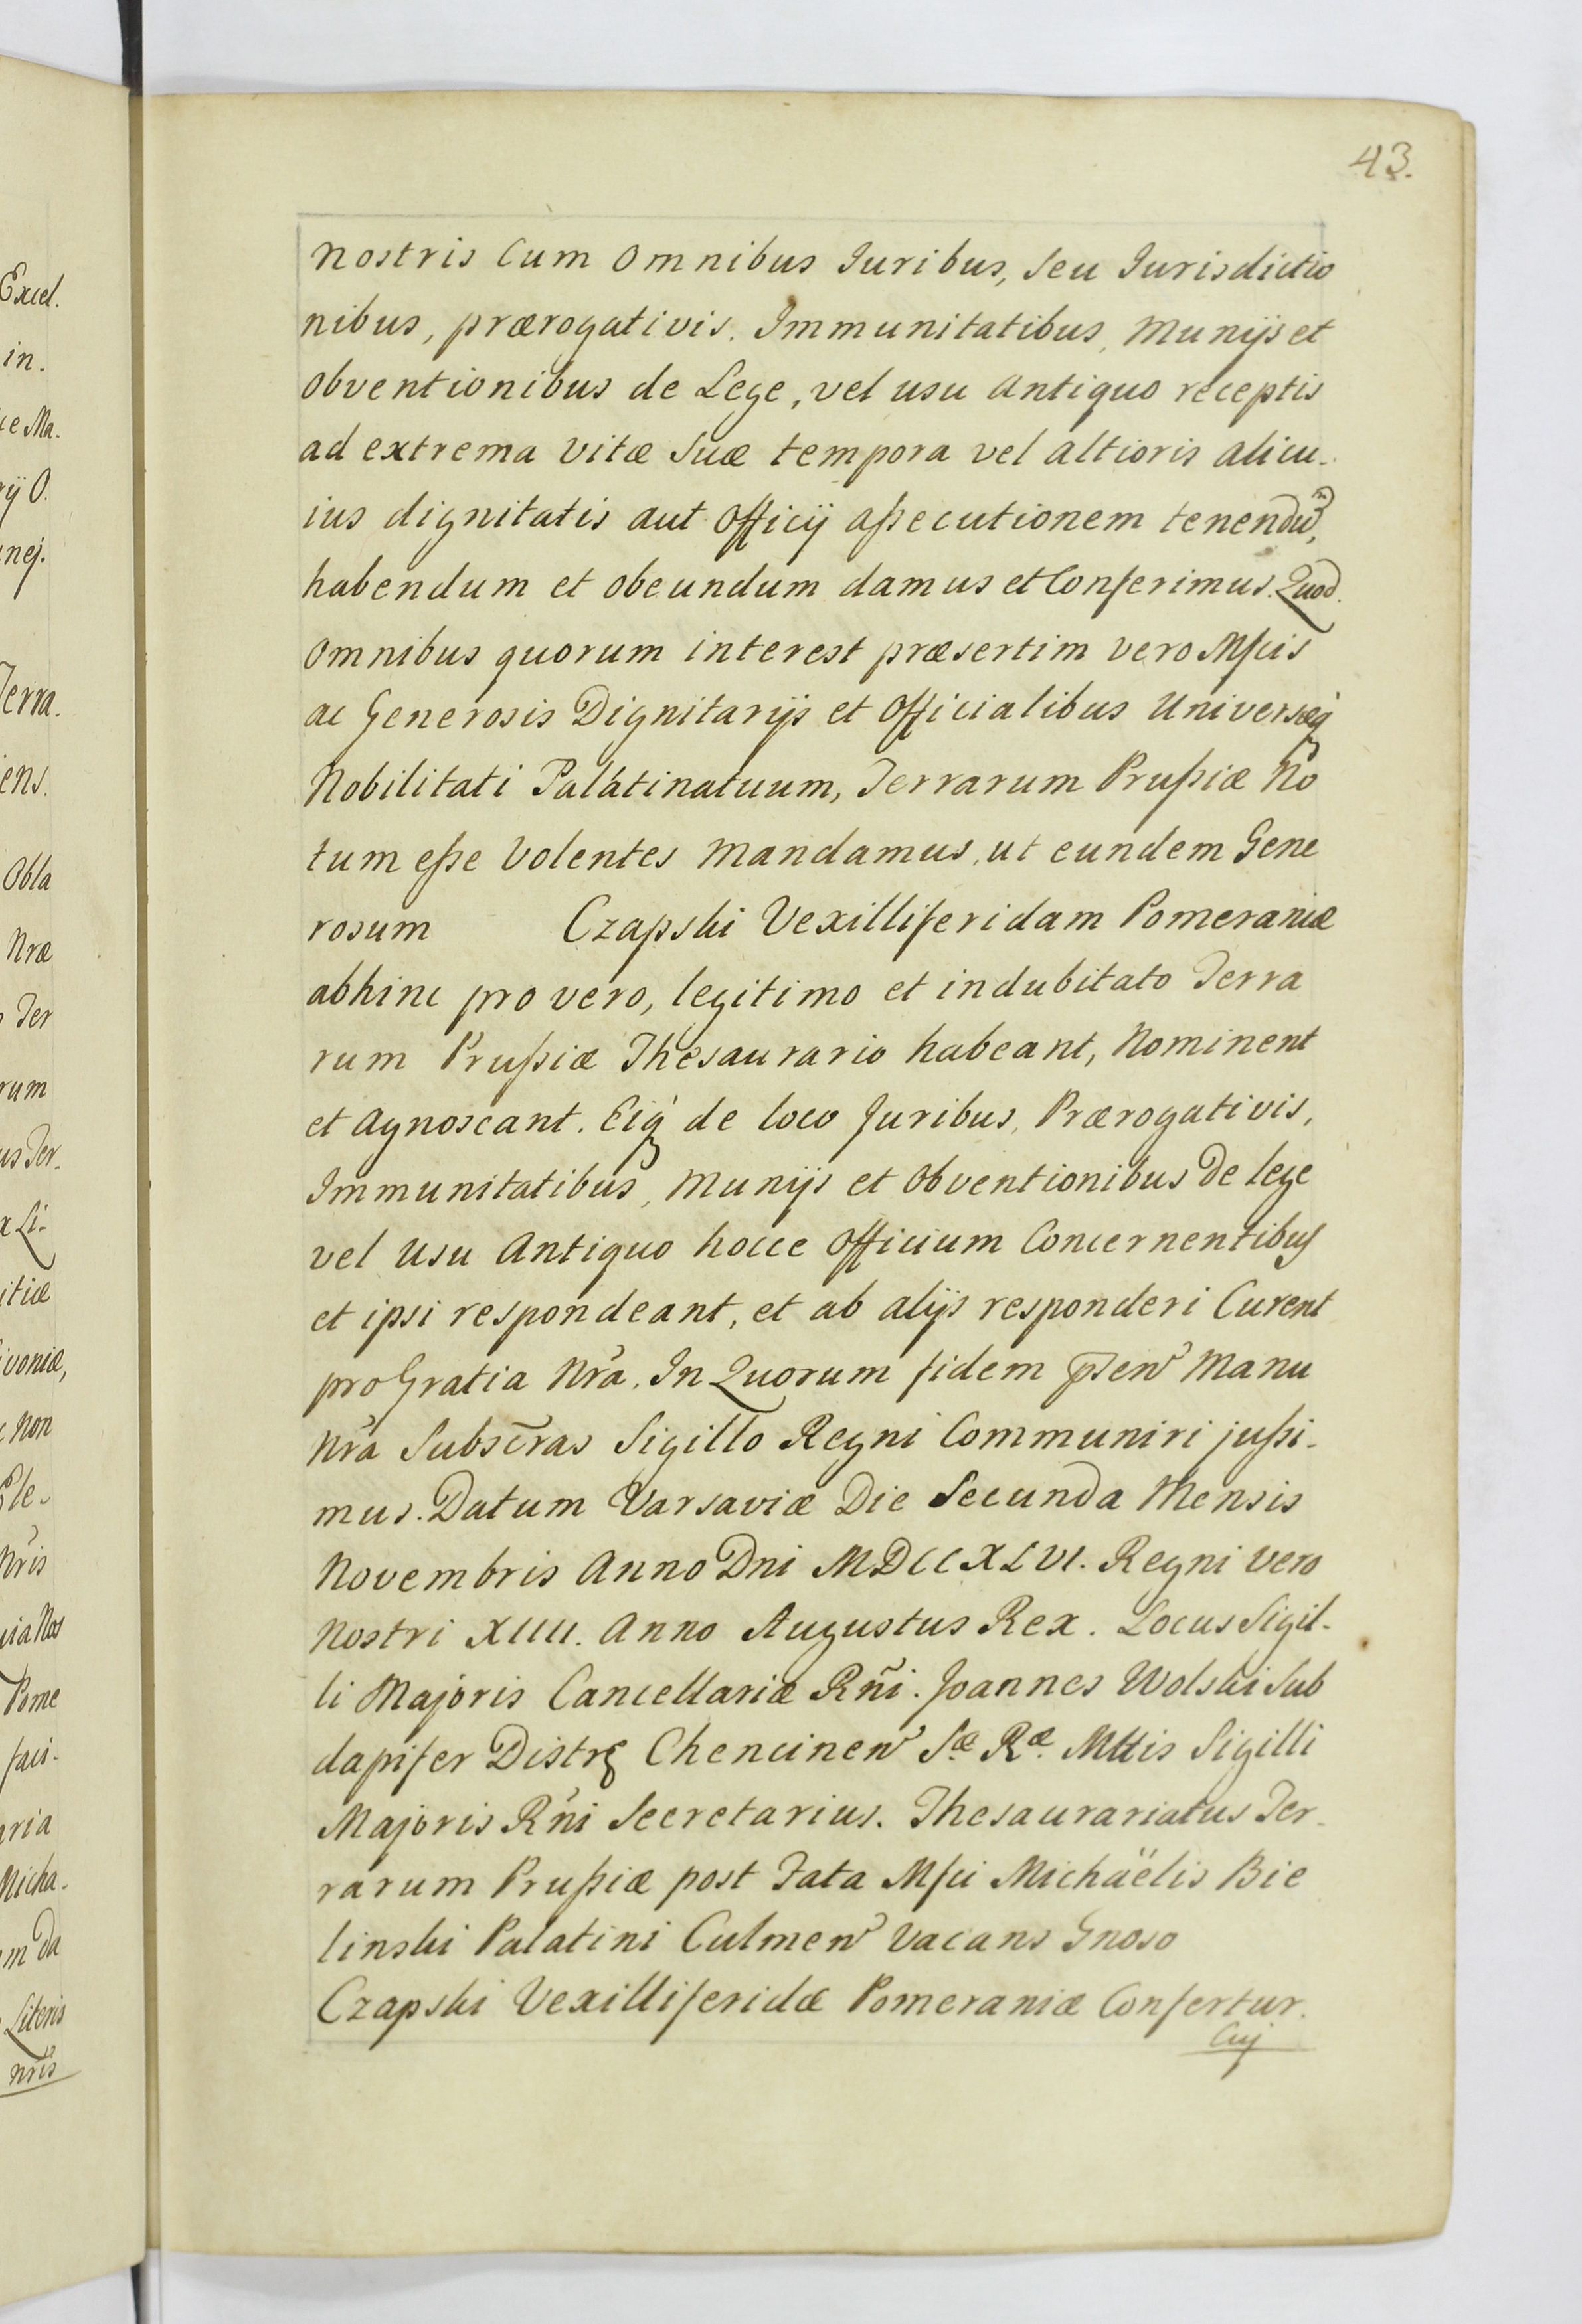 43.
nostris Cum Omnibus Iuribus, seu Iurisdictio
nibus, prærogativis. Immunitatibus, Munijs et
Obventionibus de Lege, vel usu Antiquo receptis
ad extrema vitæ suæ tempora vel altioris alicu-
ius dignitatis aut Officij aßecutionem tenendu͂,
habendum et obeundum damus et Conferimus. Quod
Omnibus quorum interest præsertim vero Mfcis
ac Generosis Dignitarijs et Officialibus Universæq́
Nobilitati Palatinatuum, Terrarum Prußiæ No
tum eße Volentes Mandamus, ut eundem Gene
rosum Czapski Vexilliferidam Pomeraniæ
abhinc pro vero, legitimo et indubitato Terra
rum Prußiæ Thesaurario habeant, Nominent
et Agnoscant. Eiq́ de loco Juribus, Prærogativis,
Immunitatibus, Munijs et Obventionibus De lege
vel Usu Antiquo hocce Officium Concernentibus
et ipsi respondeant, et ab alijs responderi Curent
pro Gratia Nr̃a. In Quorum fidem p̃sen̄ Manu
Nr̃a Subsc̃ras Sigillo Regni Communiri jußi-
mus. Datum Varsaviæ Die Secunda Mensis
Novembris Anno Dni MDCCXLVI. Regni vero
Nostri XIIII. Anno Augustus Rex. Locus Sigil-
li Majoris Cancellariæ Rñi. Joannes Wolski Sub
dapifer Distrꝰ Chencinen̄ Sæ. Ræ. Mttis Sigilli
Majoris Rñi Secretarius. Thesaurariatus Ter-
rarum Prußiæ post Fata Mfci Michäelis Bie
linski Palatini Culmen̄ Vacans Gnoso
Czapski Vexilliferidæ Pomeraniæ Confertur.
Cuj
Excel.
in.
ue Ma.
rij O.
nej.
Terra.
iens.
Obla
Nræ
Ter
rum
us Ter.
x Li-
itiæ
ivoniæ,
c Non
Ele-
Nr̃is
uia Nos
Pome
faci-
aria
Micha-
em Da
Literis
nr̃is